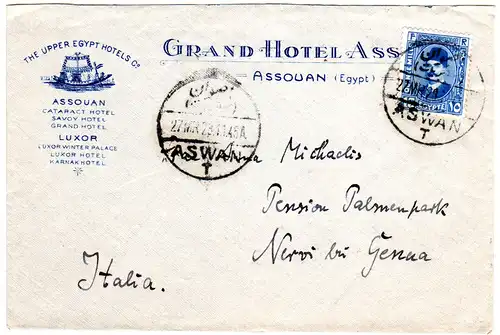 THE UPPER EGYPT HOTELS Co
ASSOUAN
CATARACT HOTEL
SAVOY HOTEL
GRAND HOTEL
LUXOR
LUXOR WINTER PALACE
LUXOR HOTEL
KARNAK HOTEL
GRAND HOTEL ASS
ASSOUAN (Egypt)
اسوان
ASWAN
T
ASWAN
T
١٥
15
Anna Michaelis
Pension Palmenpark
Nervi bei Genua
Italia.